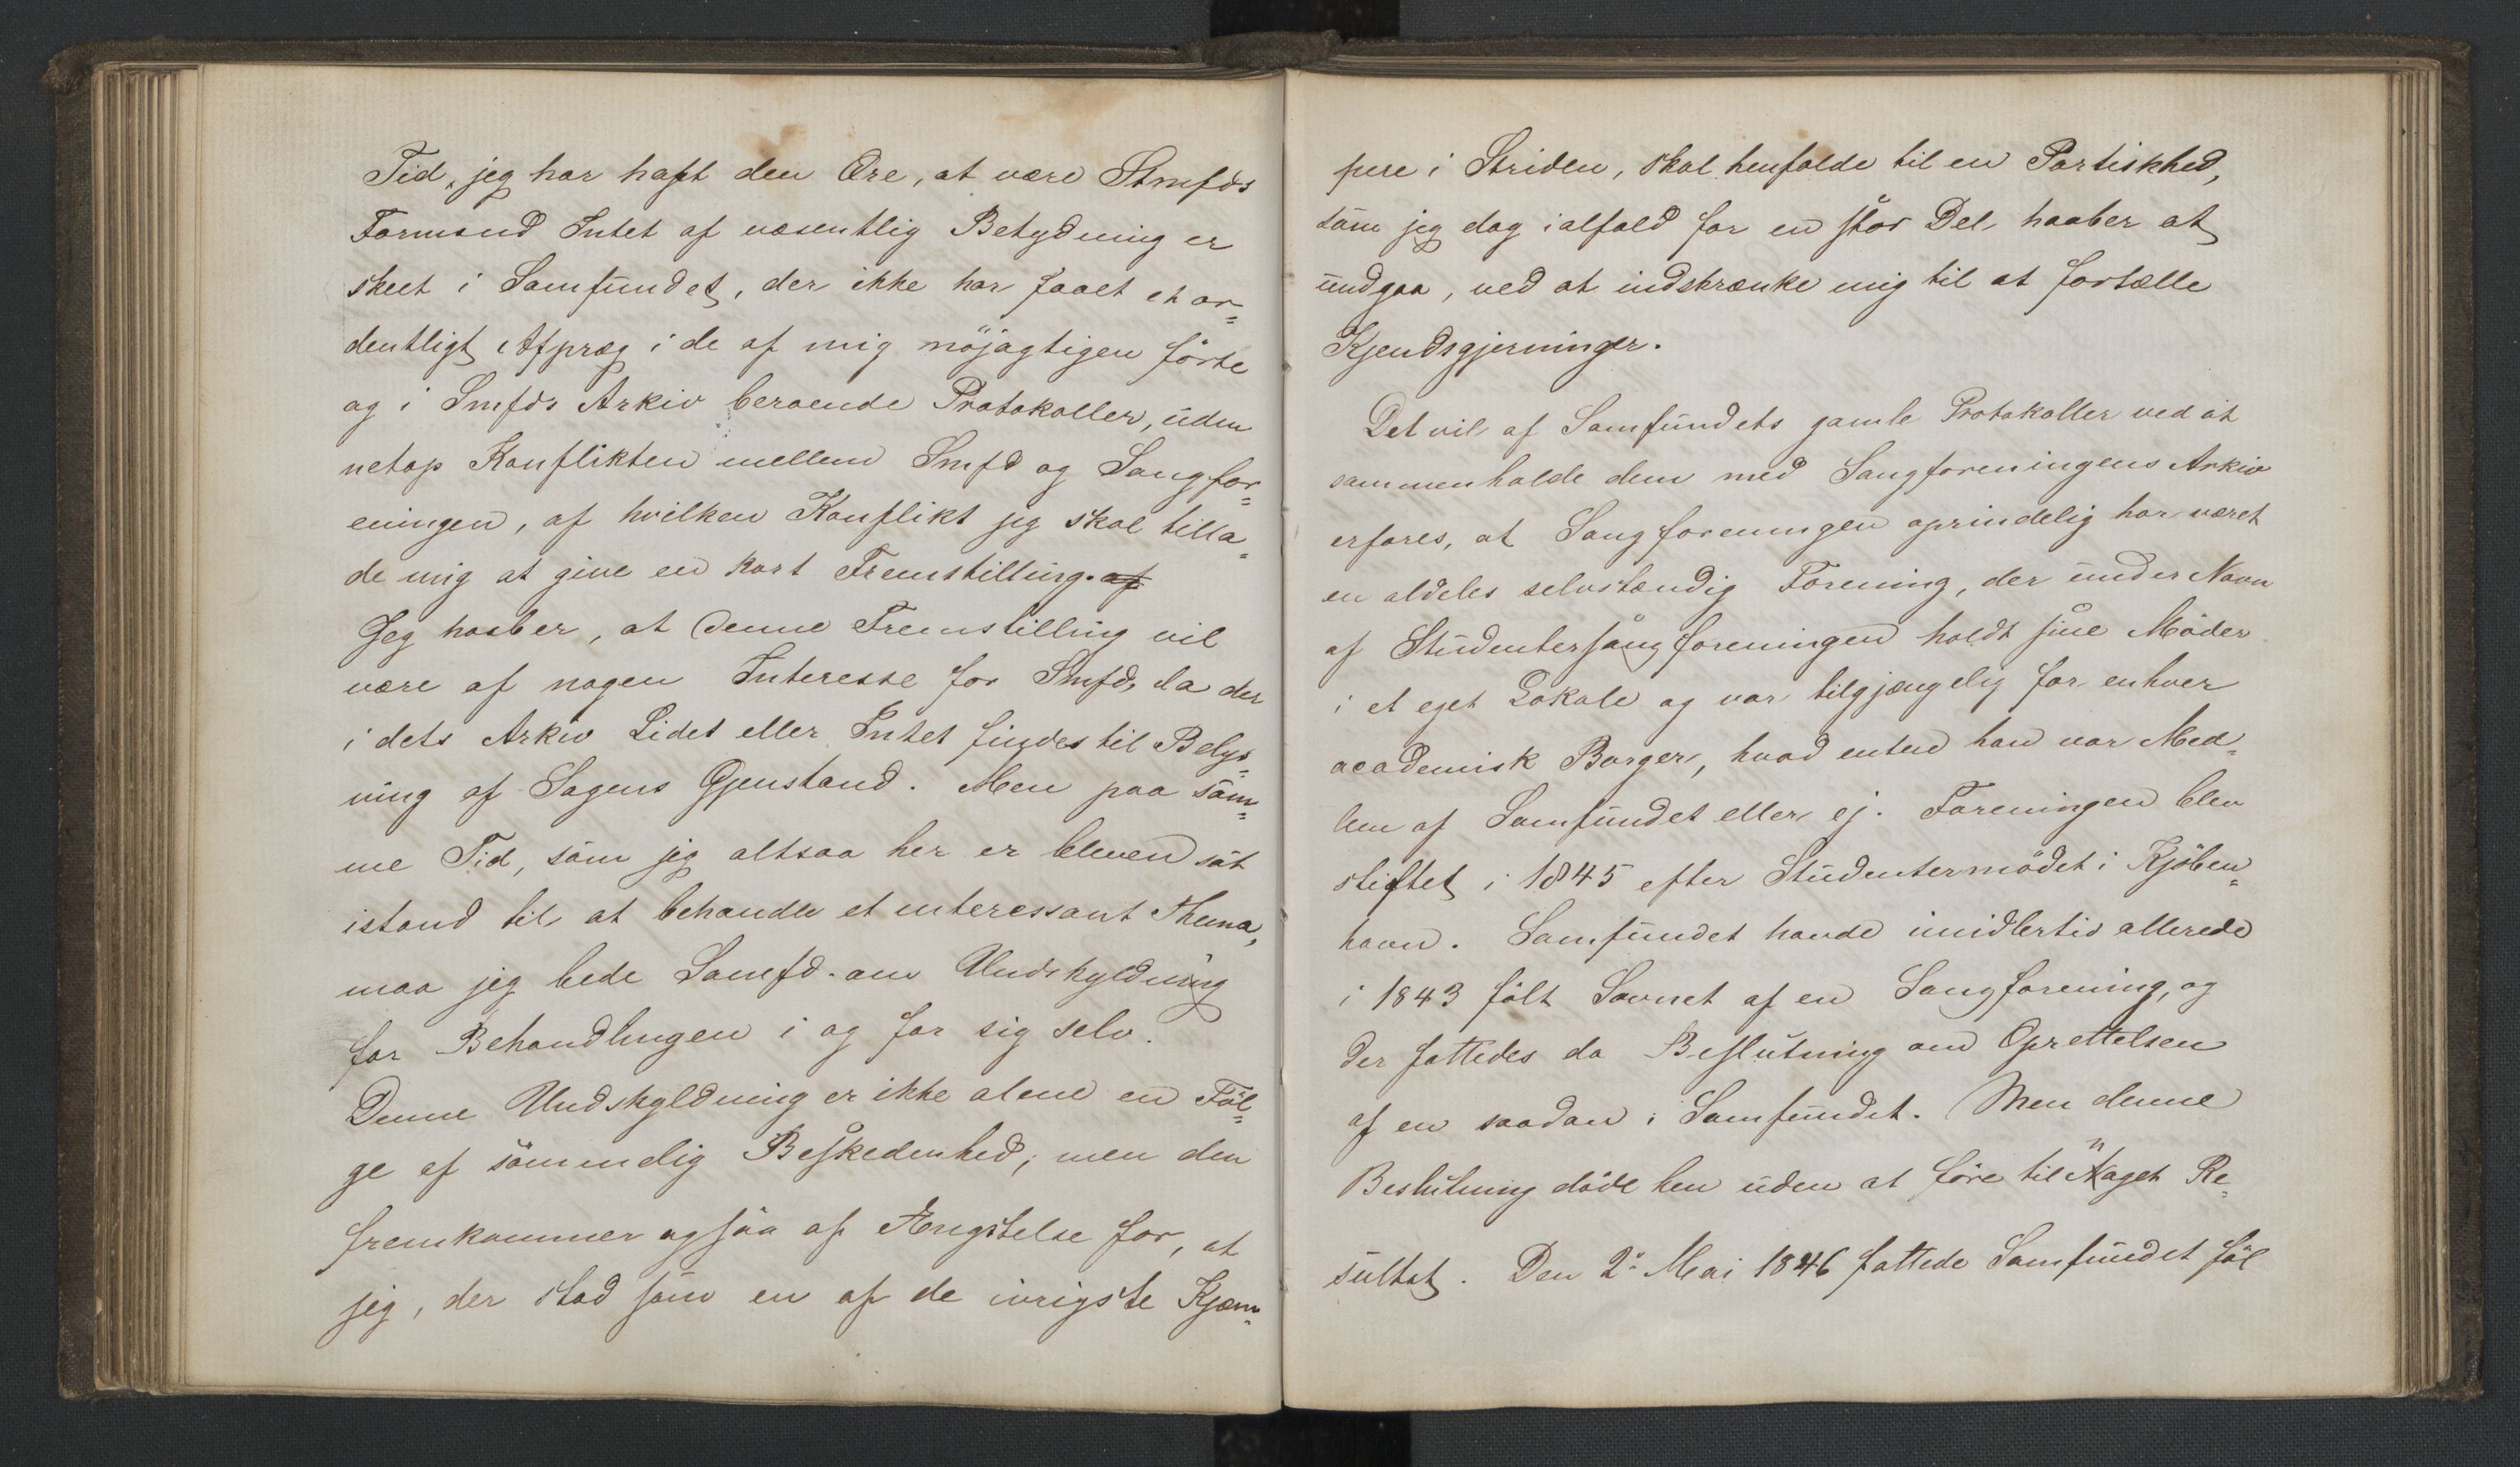 Tid, jeg har haft den Ære, at være Stmfds
Formand Intet af væsentlig Betydning er
skeet i Samfundet, der ikke har faaet et or=
dentligt Afpræg i de af mig nöjagtigen förte
og i Smfds Arkiv beroende Protokoller, uden
netop Konflikten mellem Smfd og Sangfor=
eningen, af hvilken Konflikt jeg skal tilla=
de mig at give en kort Fremstilling. af
Jeg haaber, at denne Fremstilling vil
være af nogen Interesse for Smfd, da der
i dets Arkiv Lidet eller Intet findes til Belys=
ning af Sagens Gjenstand. Men paa sam=
me Tid, som jeg altsaa her er bleven sat
istand til at behandle et interessant Thema,
maa jeg bede Samfd. om Undskyldning
for Behandlingen i og for sig selv.
Denne Undskyldning er ikke alene en Föl=
ge af sömmelig Beskedenhed; men den
fremkommer ogsaa af Ængstelse for, at
jeg, der stod som en af de ivrigste Kjæm=
pere i Striden, skal henfalde til en Partiskhed,
som jeg dog ialfald for en stor Del haaber at
undgaa, ved at indskrænke mig til at fortælle
Kjendsgjerninger.
Det vil af Samfundets gamle Protokoller ved at
sammenholde dem med Sangforeningens Arkiv
erfares, at Sangforeningen oprindelig har været
en aldeles selvstændig Forening, der under Navn
af Studentersangforeningen holdt sine Möder
i et eget Lokale og var tilgjængelig for enhver
academisk Borger, hvad enten han var Med=
lem af Samfundet eller ej. Foreningen blev
stiftet i 1845 efter Studentermödet i Kjöben=
havn. Samfundet havde imidlertid allerede
i 1843 fölt Savnet af en Sangforening, og
der fattedes da Beslutning om Oprettelsen
af en saadan i Samfundet. Men denne
Beslutning döde hen uden at före til noget Re=
sultat. Den 2. Mai 1846 fattede Samfundet föl